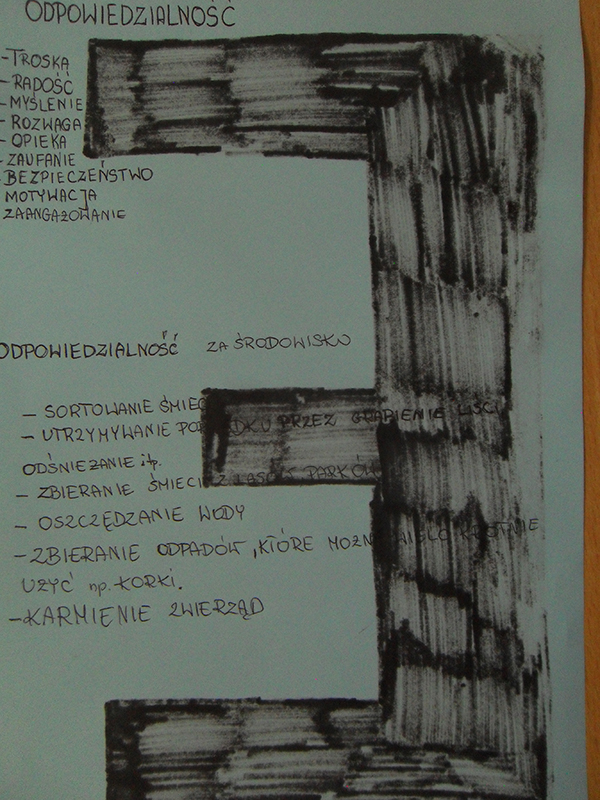 ODPOWIEDZIALNOŚĆ
-TROSKA
-RADOŚĆ
-MYŚLENIE
-ROZWAGA
-OPIEKA
-ZAUFANIE
BEZPIECZEŃSTWO
MOTYWACJA
ZAANGAŻOWANIE
ODPOWIEDZIALNOŚĆ ZA ŚRODOWISKO
- SORTOWANIE ŚMIEC
- UTRZYMYWANIE PORZĄDKU PRZEZ GRABIENIE LIŚCI
ODŚNIEŻANIE itp.
- ZBIERANIE ŚMIECI Z LASÓW PARKÓW
- OSZCZĘDZANIE WODY
-ZBIERANIE ODPADÓW, KTÓRE MOŻNA WIELOKROTNIE
UŻYĆ np. KORKI.
-KARMIENIE ZWIERZĄD